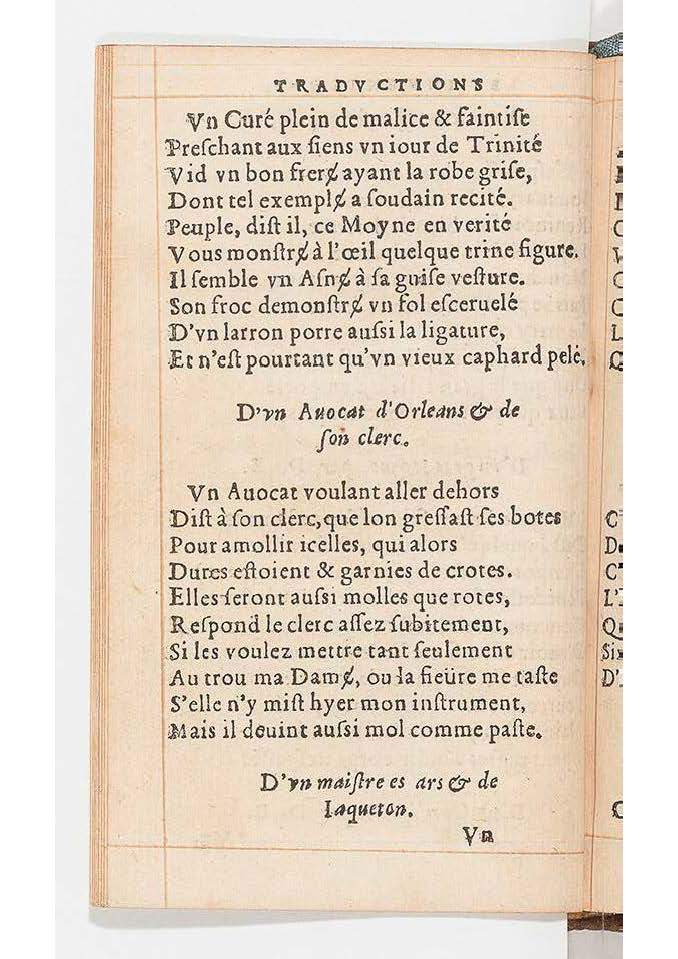 TRADVCTIONS
Vn Curé plein de malice & faintiſe
Preſchant aux ſiens vn iour de Trinité
Vid vn bon frerɇ ayant la robe griſe,
Dont tel exemplɇ a ſoudain recité.
Peuple, diſt il, ce Moyne en verité
Vous monſtrɇ à l'œil quelque trine figure.
Il ſemble vn Aſnɇ à ſa guiſe veſture.
Son froc demonſtrɇ vn fol eſceruelé
D'vn larron porre auſsi la ligature,
Et n'eſt pourtant qu'vn vieux caphard pelé.
D'vn Auocat d'Orleans & de
ſon clerc.
Vn Auocat voulant aller dehors
Diſt à ſon clerc, que lon greſſaſt ſes botes
Pour amollir icelles, qui alors
Dures eſtoient & garnies de crotes.
Elles ſeront auſsi molles que rotes,
Reſpond le clerc aſſez ſubitement,
Si les voulez mettre tant ſeulement
Au trou ma Damɇ, ou la fieüre me taſte
S'elle n'y miſt hyer mon inſtrument,
Mais il deuint auſsi mol comme paſte.
D'vn maiſtre es ars & de
Iaqueton.
Vn